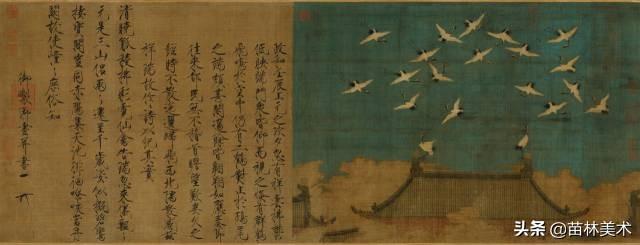 政和壬辰上元之次夕忽有祥雲拂鬱
低映端門眾皆仰而視之倏有群鶴
飛鳴於空中仍有二鶴對止於鴟尾
之端頗甚閑適餘皆翱翔如應奏節
往來都民無不稽首瞻望歎異久之
經時不散迤邐歸飛西北隅散感茲
祥瑞故作詩以紀其實
清曉觚稜拂彩霓仙禽告瑞忽來儀飄飄
元是三山侶兩兩還呈千歲姿似擬碧鸞
棲寶閣豈同赤鴈集天池徘徊嘹唳當丹
闕故使憧憧庶俗知
御製御畫并書
头条 @苗林美术